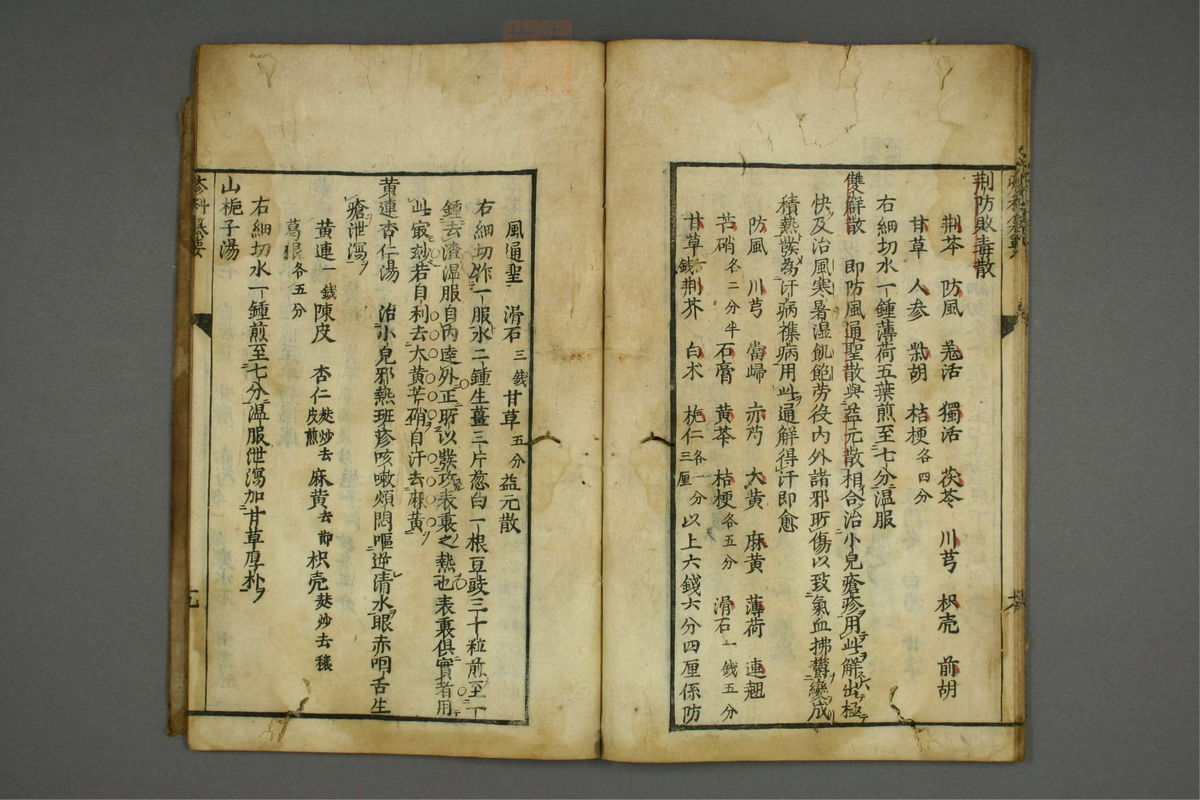 荆防敗毒散
荆芥 防風 羌活 獨活 茯苓 川芎 枳壳 前胡
甘草 人参 柴胡 桔梗各四分
右細切水一鍾薄荷五葉煎至七分温服
雙解散 即防風通聖散與益元散相合治小兒瘡疹用此解出極
快及治風寒暑湿飢飽勞役内外諸邪所傷以致氣血拂欝變成
積熱發為汗病襍病用此通解得汗即愈
防風 川芎 當歸 赤芍 大黄 麻黄 薄荷 連翹
芒硝各二分半 石膏 黄芩 桔梗各五分 滑石一錢五分
甘草一錢 荆芥 白朮 梔仁各一分三厘 以上六錢六分四厘係防
風通聖 滑石三錢 甘草五分 益元散
右細切作一服水二鍾生薑三片葱白一根豆豉三十粒煎至一
鍾去渣温服自内達外正所以發攻表裏之熱也表裏俱實者用
此最妙若自利去大黄芒硝自汗去麻黄
黄連杏仁湯 治小兒邪熱班疹咳嗽煩悶嘔逆清水眼赤咽舌生
瘡泄瀉
黄連一錢 陳皮 杏仁麸炒去皮煎 麻黄去節 枳壳麸炒去穰
葛根各五分
右細切水一鍾煎至七分温服泄瀉加甘草厚朴
山梔子湯